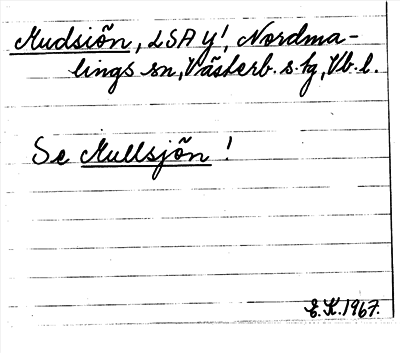 Mudsiön, LSA Y!, Nordma-
lings sn, Västerb. s. tg, Vb. l.
Se Mullsjön!
E. K. 1967.